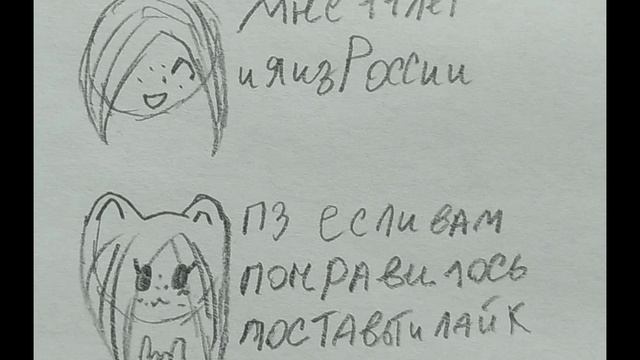 Мне 11 лет
и я из России
пз если вам
понравилось
поставьти лайк